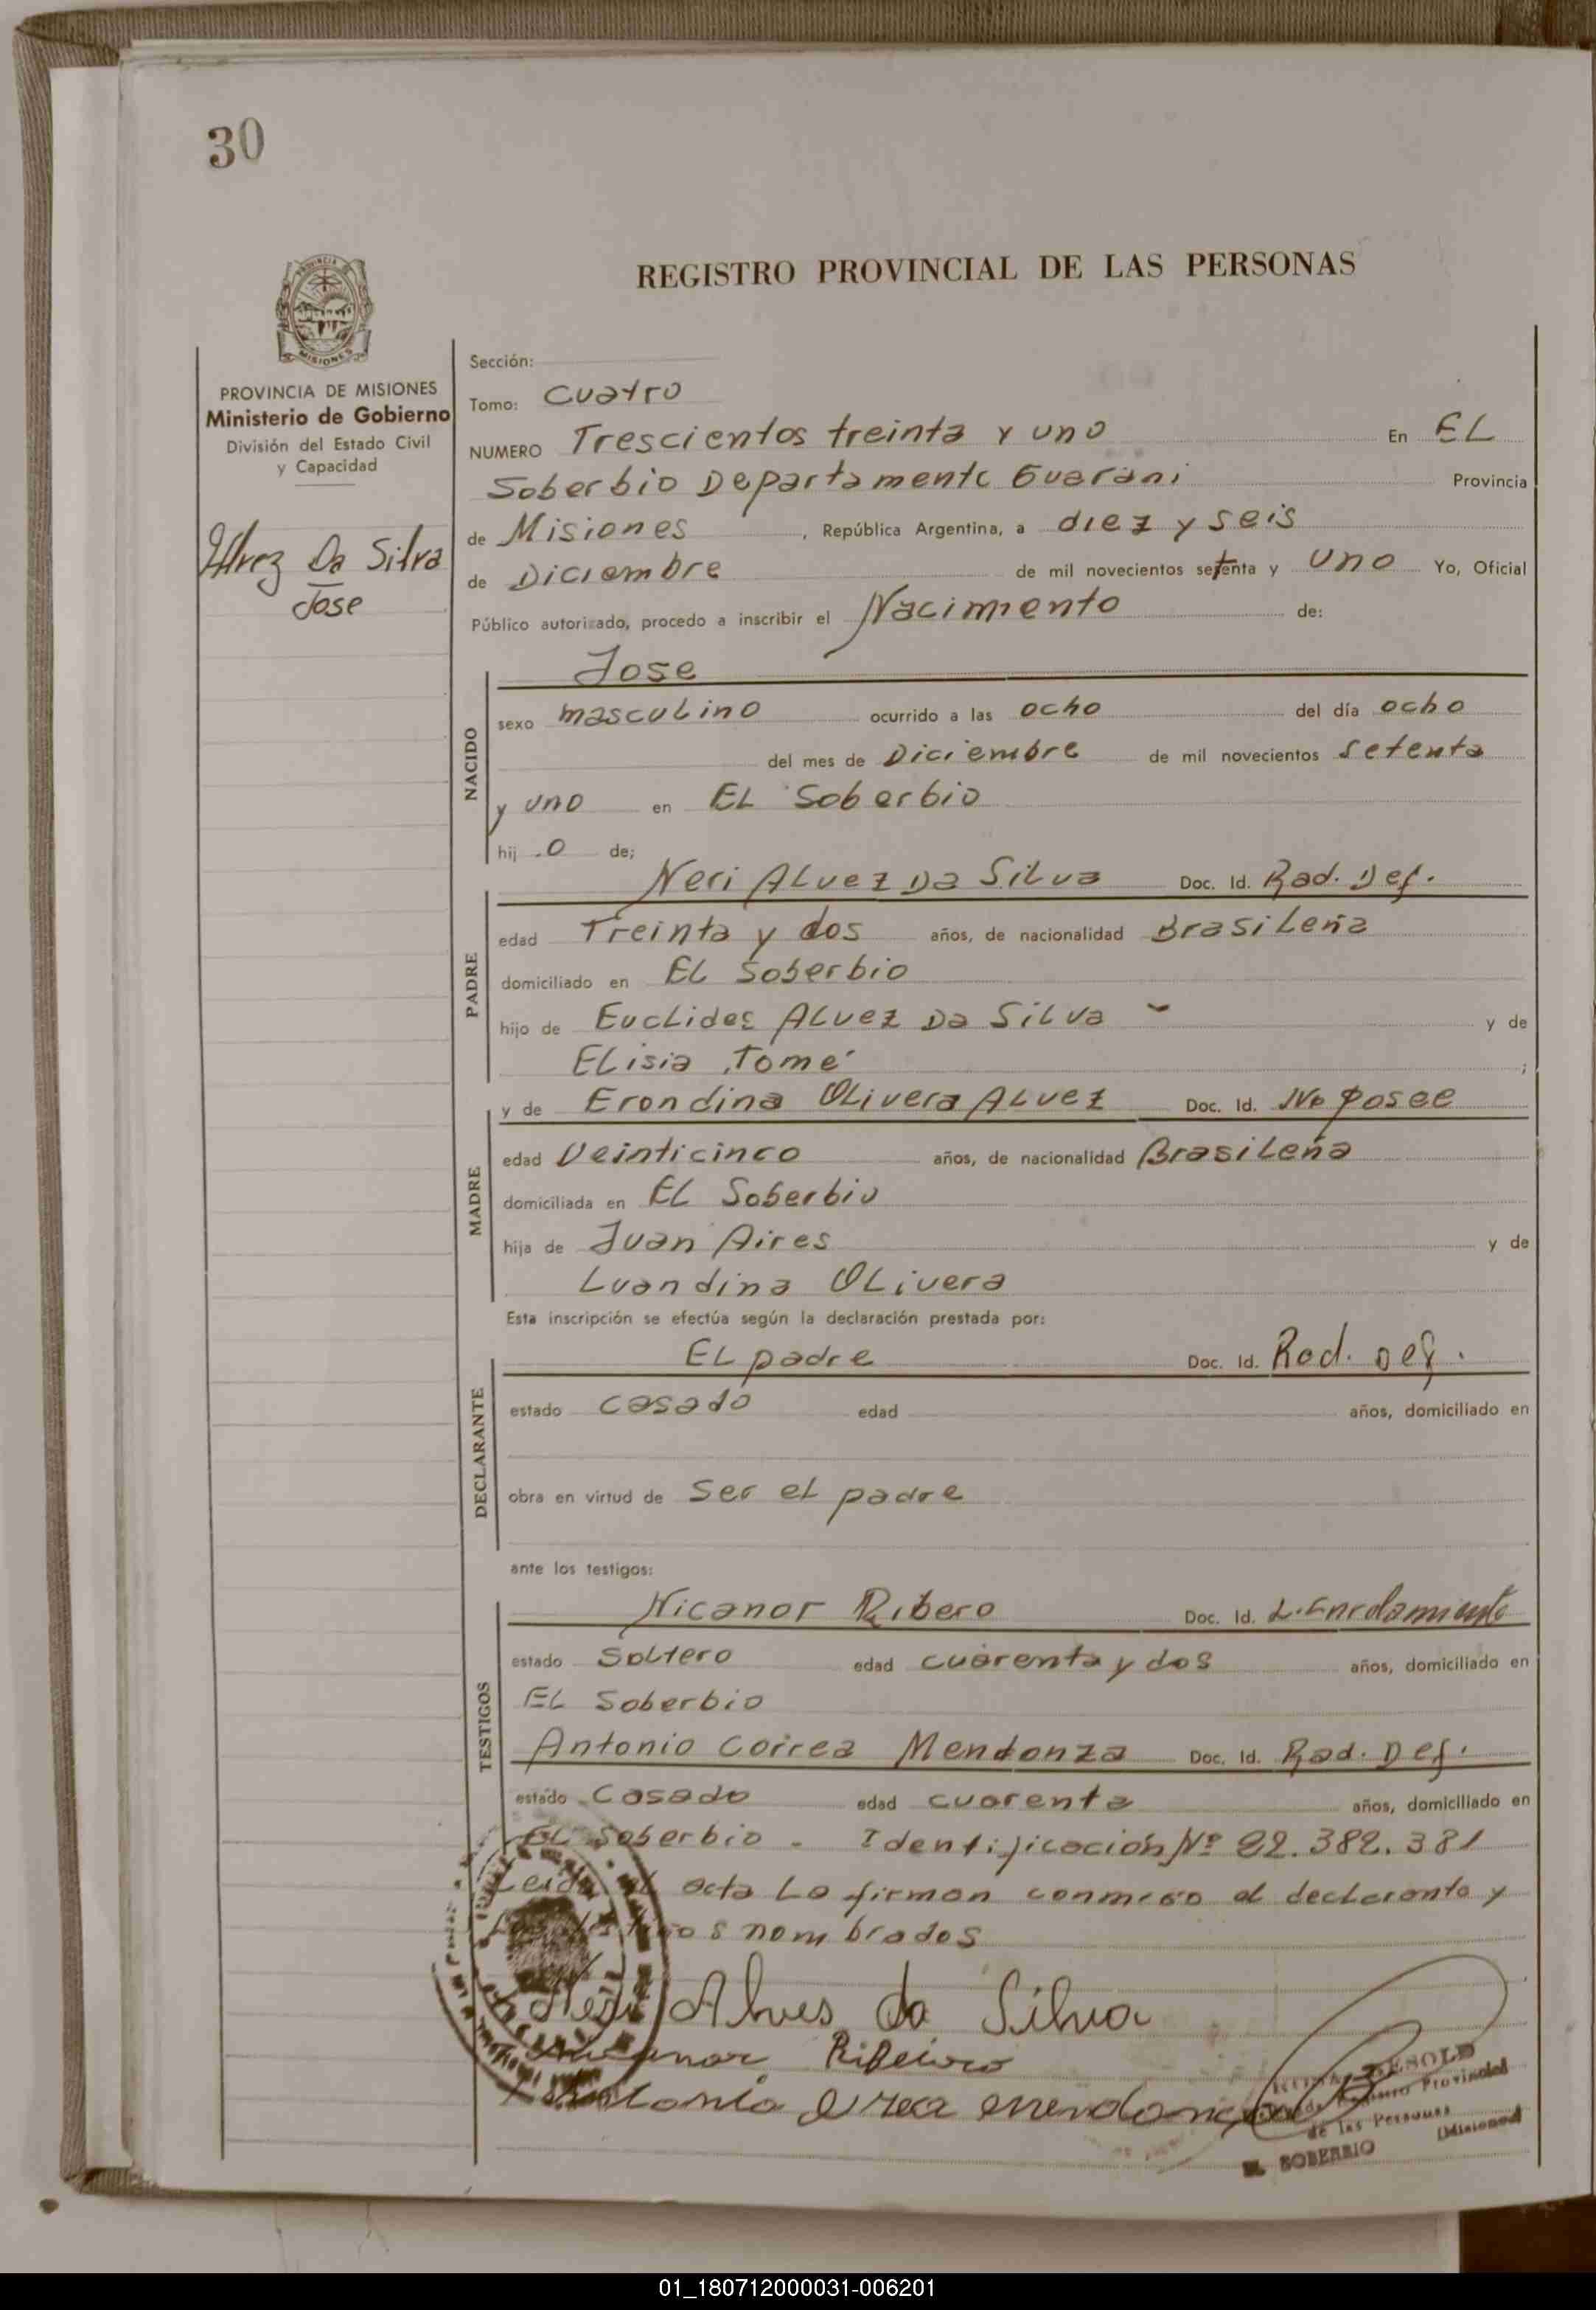 30
REGISTRO PROVINCIAL DE LAS PERSONAS
PROVINCIA DE MISIONES
Ministerio de Gobierno
División del Estado Civil
y Capacidad
Alvez Da Silva
Jose
Sección:
Tomo: Cuatro
NUMERO Trescientos treinta y uno En EL
Soberbio Departamento Guarani Provincia
de Misiones, República Argentina, a diez y seis
de Diciembre de mil novecientos setenta y uno Yo, Oficial
Público autorizado, procedo a inscribir el Nacimiento de:
NACIDO
Jose
sexo masculino ocurrido a las ocho del día ocho
del mes de Diciembre de mil novecientos setenta
y uno en EL Soberbio
hij o de;
PADRE
Neri Alvez Da Silva Doc. Id. Rad. Def.
edad Treinta y dos años, de nacionalidad Brasileña
domiciliado en EL Soberbio
hijo de Euclides Alvez Da Silva y de
Elisia Tomé ;
MADRE
y de Erondina Olivera Alvez Doc. Id. No posee
edad Veinticinco años, de nacionalidad Brasileña
domiciliada en EL Soberbio
hija de Juan Aires y de
Luandina Olivera
Esta inscripción se efectúa según la declaración prestada por:
DECLARANTE
EL padre Doc. Id. Rad. Def.
estado casado edad años, domiciliado en
obra en virtud de ser el padre
ante los testigos:
TESTIGOS
Nicanor Ribero Doc. Id. L. Enrolamiento
estado Soltero edad cuarenta y dos años, domiciliado en
EL Soberbio
Antonio Correa Mendonza Doc. Id. Rad. Def.
estado Casado edad cuarenta años, domiciliado en
EL Soberbio - Identificación Nº 22.382.381
Leida el acta la firman conmigo el declarante y
los testigos nombrados
Neri Alves da Silva
Nicanor Ribeiro
Antonio
Registro Provincial
de las Personas
EL SOBERBIO (Misiones)
01_180712000031-006201